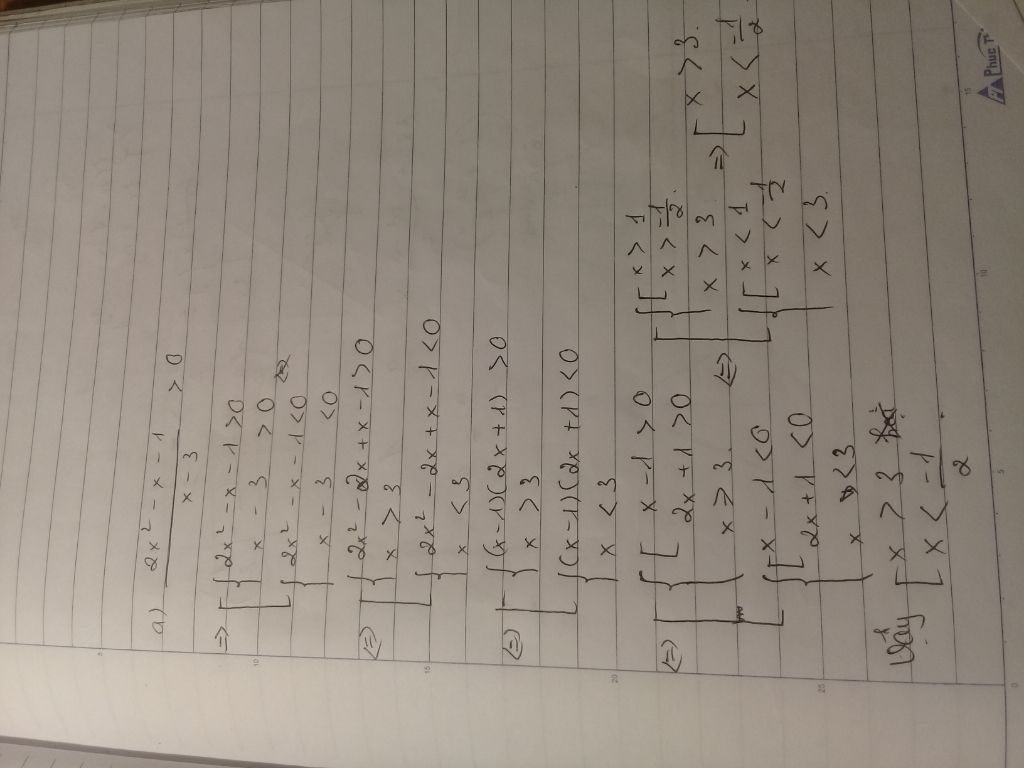 a) (2x² - x - 1)/(x - 3) > 0
=> [ { 2x² - x - 1 > 0
x - 3 > 0
{ 2x² - x - 1 < 0
x - 3 < 0
<=> [ { 2x² - 2x + x - 1 > 0
x > 3
{ 2x² - 2x + x - 1 < 0
x < 3
<=> [ { (x - 1)(2x + 1) > 0
x > 3
{ (x - 1)(2x + 1) < 0
x < 3
<=> [ { [ x - 1 > 0
2x + 1 > 0
x > 3
{ [ x - 1 < 0
2x + 1 < 0
x < 3
<=> [ { [ x > 1
x > -1/2
x > 3
{ [ x < 1
x < -1/2
x < 3
=> [ x > 3
x < -1/2
Vậy [ x > 3
x < -1/2
5
10
15
20
25
0
5
10
15